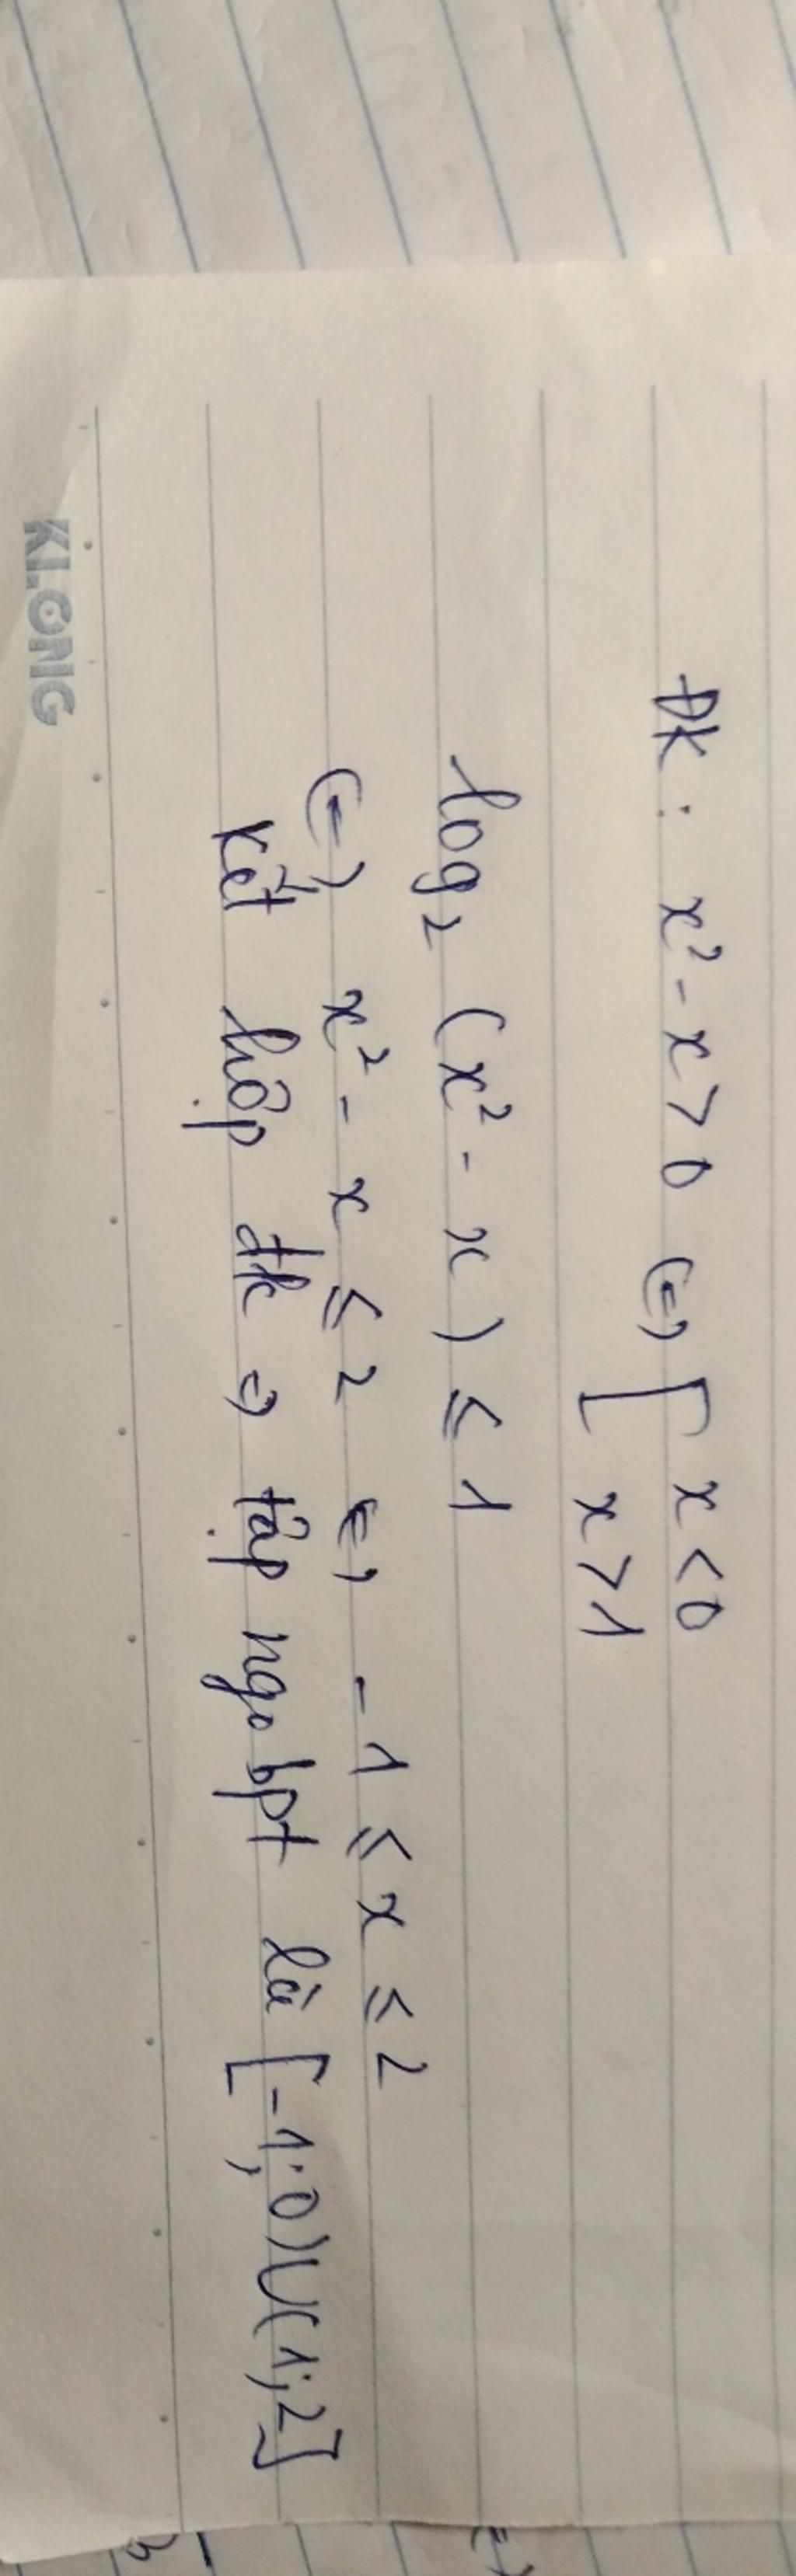 ĐK : x² - x > 0 (=) [ x < 0
x > 1
log₂ (x² - x) ≤ 1
(=) x² - x ≤ 2 (=) -1 ≤ x ≤ 2
Kết hợp đk => tập ngo bpt là [-1;0)∪(1;2]
KLONG